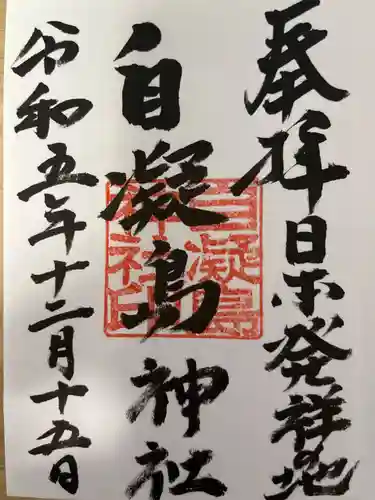 奉拝 日本発祥の地
自凝島神社
自凝島神社印
令和五年十二月十五日